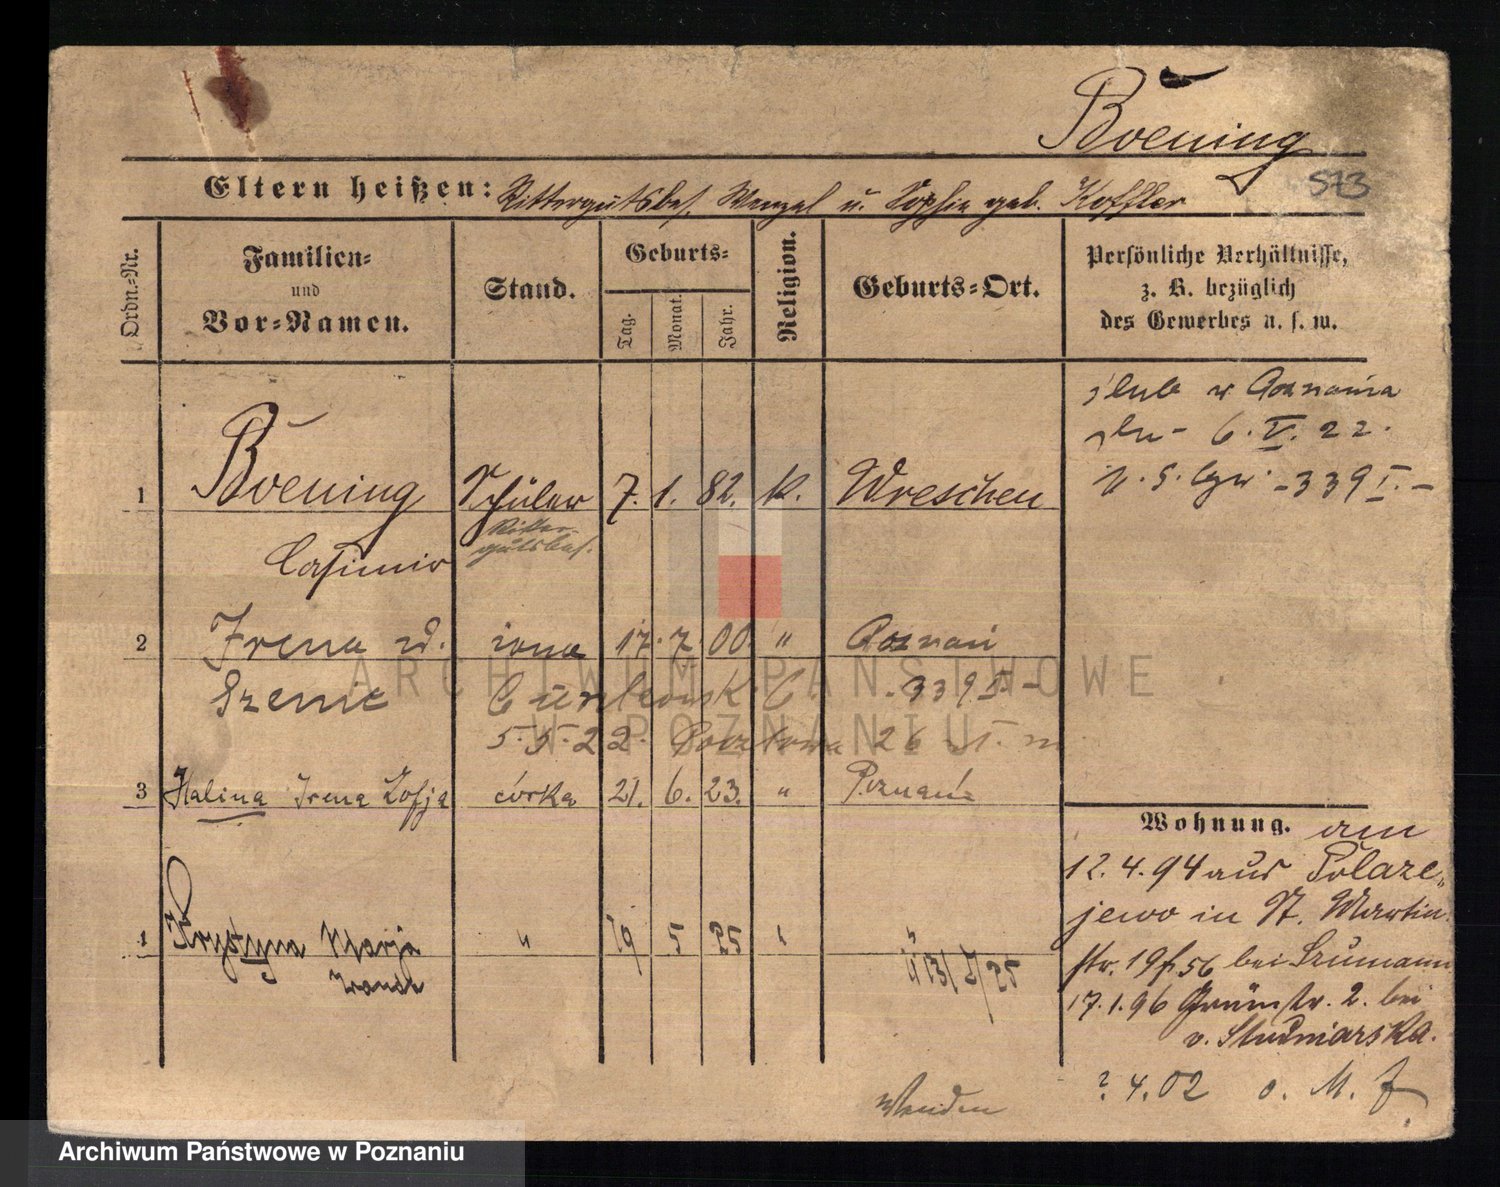 Boening
573
Eltern heißen: Rittergutsbes. Wenzel u. Sophie geb. Koffler
Ordn.-Nr.
Familien-
und
Vor-Namen.
Stand.
Geburts-
Tag.
Monat.
Jahr.
Religion.
Geburts-Ort.
Persönliche Verhältnisse,
z. B. bezüglich
des Gewerbes u. s. w.
ślub w Poznaniu
dn- 6. V. 22.
339 I. -
1 Boening Schüler 7. 1. 82. K. Wreschen
Ritter-
gutsbes.
Casimir
2 Irena ud. żona 17. 7. 00. " Poznań
Szenic 339 I -
5. 5. 22. Pocztowa 26
3 Halina Irena Zofja córka 21. 6. 23. " Poznań
Wohnung. am
12. 4. 94 aus Polaze-
jewo in St. Martin
str. 19 bei Szumann
17. 1. 96 Grünstr. 2. bei
v. Studniarska.
? 4. 02 o. M. f
4 Krystyna Marja " 19 5 25 "
Wenden
ARCHIWUM PAŃSTWOWE
W POZNANIU
Archiwum Państwowe w Poznaniu